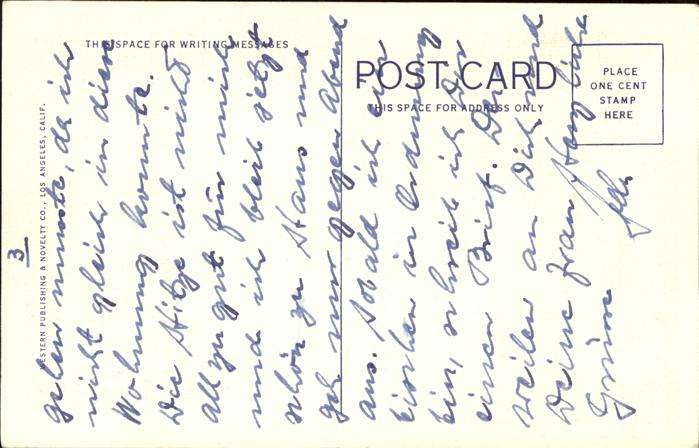 THIS SPACE FOR WRITING MESSAGES
POST CARD
THIS SPACE FOR ADDRESS ONLY
PLACE
ONE CENT
STAMP
HERE
WESTERN PUBLISHING & NOVELTY CO., LOS ANGELES, CALIF.
3
gehen musste, da ich
nicht gleich in diese
Wohnung konnte.
Die Hitze ist nicht
allzu gut für mich
und ich bleib jetzt
schön zu Haus und
geh nur gegen Abend
aus. Sobald ich ein
bischen in Ordnung
bin, schreib ich Dir
einen Brief.
weilen an Dich und
Deine Frau Herzliche
Grüsse